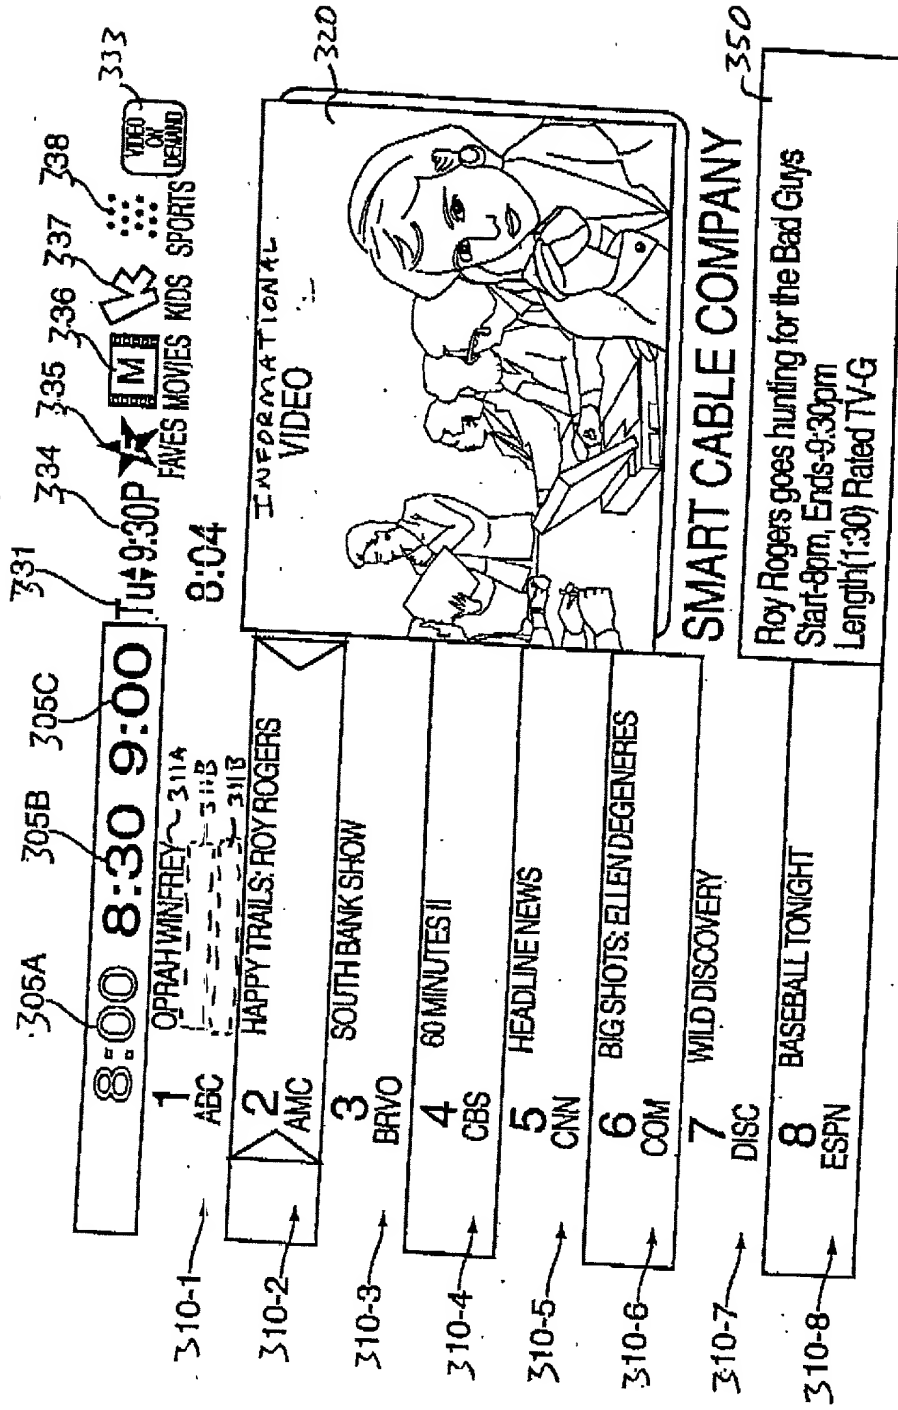 305A
305B
305C
331
334
335
336
337
338
333
8:00 8:30 9:00
Tu 9:30P
FAVES MOVIES KIDS SPORTS
M
VIDEO
ON
DEMAND
8:04
310-1
1
ABC
OPRAH WINFREY
311A
311B
311B
310-2
2
AMC
HAPPY TRAILS: ROY ROGERS
310-3
3
BRVO
SOUTH BANK SHOW
310-4
4
CBS
60 MINUTES II
310-5
5
CNN
HEADLINE NEWS
310-6
6
COM
BIG SHOTS: ELLEN DEGENERES
310-7
7
DISC
WILD DISCOVERY
310-8
8
ESPN
BASEBALL TONIGHT
320
INFORMATIONAL
VIDEO
SMART CABLE COMPANY
350
Roy Rogers goes hunting for the Bad Guys
Start-8pm, Ends-9:30pm
Length(1:30) Rated TV-G